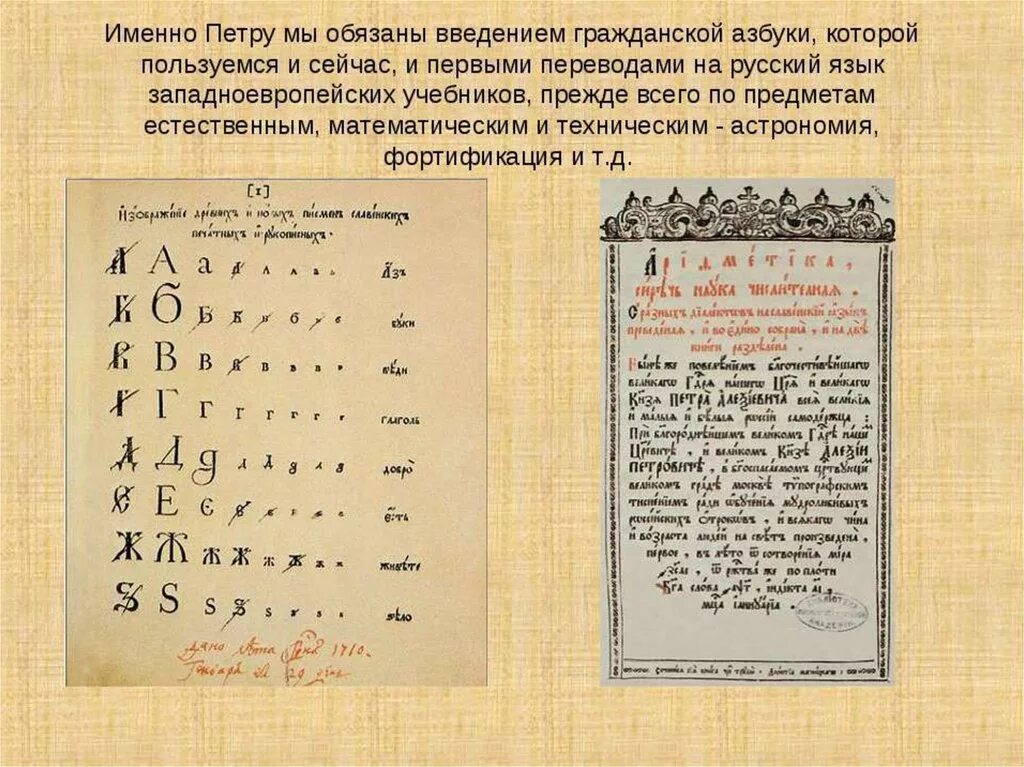 Именно Петру мы обязаны введением гражданской азбуки, которой
пользуемся и сейчас, и первыми переводами на русский язык
западноевропейских учебников, прежде всего по предметам
естественным, математическим и техническим - астрономия,
фортификация и т.д.
[1]
Изображенїе древнихъ и новыхъ писменъ славенскихъ
печатныхъ и рукописныхъ.
А А а а а а а а Азъ
Б Б Б б в б б б буки
В В в в в в в в вѣди
Г Г г г г г г г глаголь
Д Д д д д д д д добро
Є Е є є є є є є есть
Ж Ж ж ж ж ж ж ж живѣте
Ѕ Ѕ ѕ ѕ ѕ ѕ ѕ ѕ ѕѣло
дано лѣта 1710.
Генваря въ 29 день
Аріѳметіка,
сирѣчь наука числителная.
С разныхъ діалектовъ на славенскій языкъ
преведеная, и во едино собрана, и на двѣ
книги раздѣлена.
Нынѣ же повелѣніемъ благочестивѣйшагѡ
великагѡ Гдⷭ҇ря нашегѡ Цр҃я и великагѡ
Кн҃зя ПЕТРА АЛЕѮІЕВИЧА всея великія
и малыя и бѣлыя россіи самодержца:
При благороднѣйшемъ великомъ Гдⷭ҇рѣ нашемъ
Цр҃евичѣ, и великомъ Кн҃зѣ АЛЕѮІИ
ПЕТРОВИЧѢ, в богоспасаемомъ црⷭ҇твующемъ
великомъ градѣ москвѣ тѵпографскимъ
тисненіемъ ради ѡбученія мудролюбивыхъ
россійскихъ отрокѡвъ, и всякагѡ чина
и возраста людей на свѣтъ произведена,
первое, въ лѣто ѿ сотворенія міра
҂зсаі, ѿ ржⷭ҇тва же по плоти
Бг҃а слова ҂аѱг, індікта аі,
мцⷭ҇а іаннуаріа.
БИБЛИОТЕКА
АКАДЕМІИ